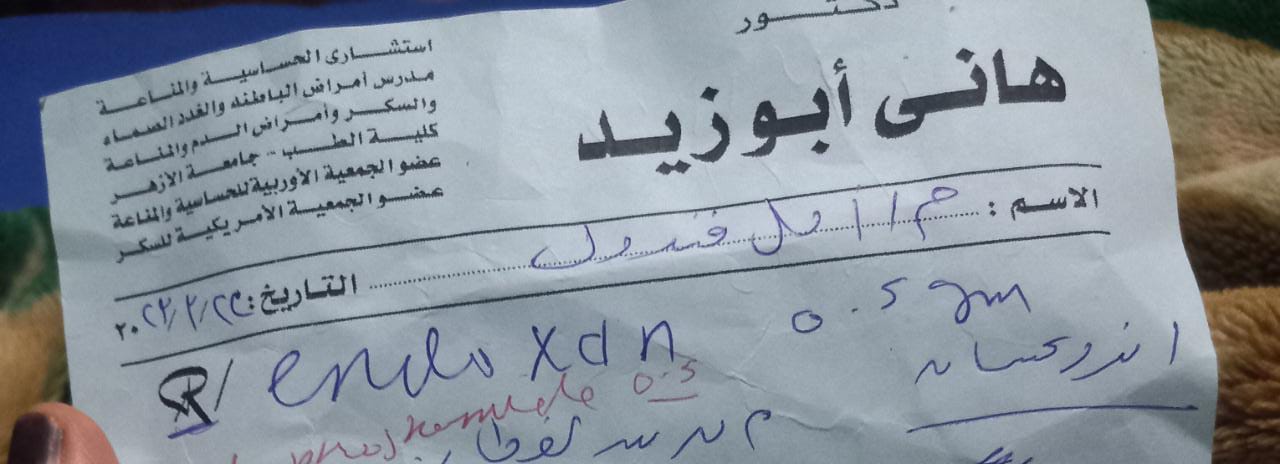 دكتور
هانى أبوزيد
استشارى الحساسية والمناعة
مدرس أمراض الباطنه والغدد الصماء
والسكر وأمراض الدم والمناعة
كلية الطب - جامعة الازهر
عضو الجمعية الأوربية للحساسية والمناعة
عضو الجمعية الأمريكية للسكر
الاسم : م / امل قنديل
التاريخ : ٢٠٢٢/٢/٢٣
R/ endoxan 0.5 gm
اندوكسان
0.5